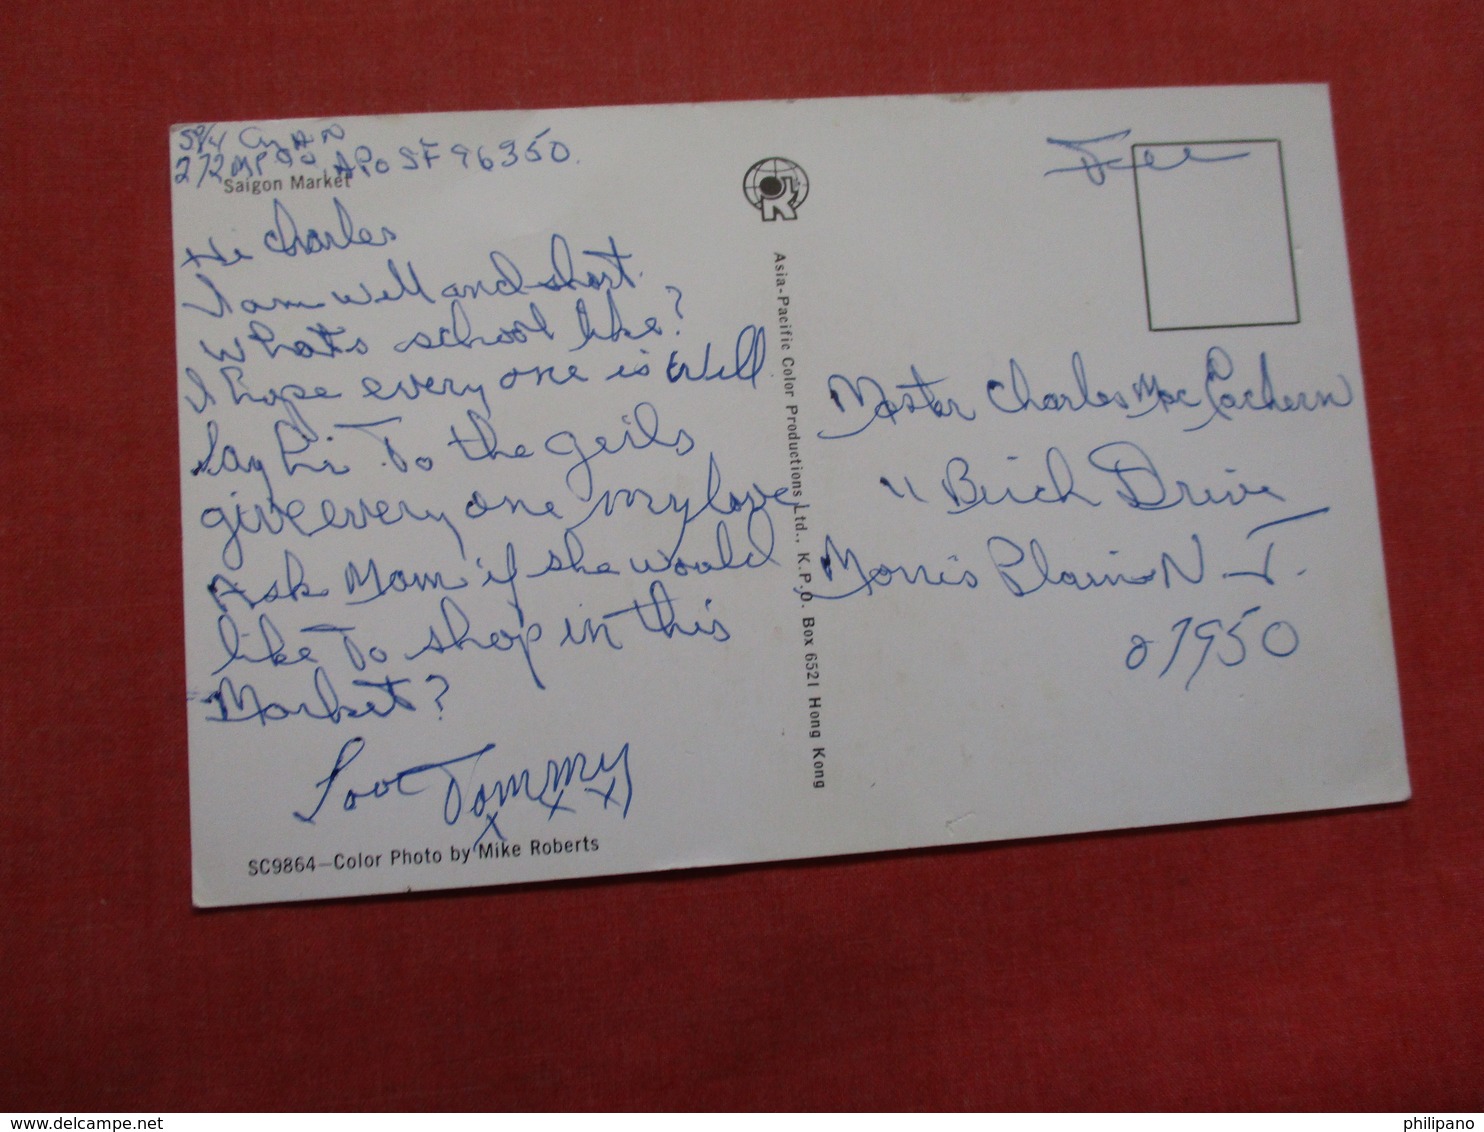 Sp/4
272 MP Co. APO SF 96350.
Saigon Market
Hi Charles
I am well and short.
What's school like?
I hope every one is well
Say hi To the geils
give every one my love
Ask Mom if she would
like To shop in this
Market?
Love Tommy
x x x
SC9864—Color Photo by Mike Roberts
Asia-Pacific Color Productions Ltd., K.P.O. Box 6521 Hong Kong
Free
Master Charles MacEachern
11 Birch Drive
Morris Plains N.J.
07950
http://www.delcampe.net
philipano